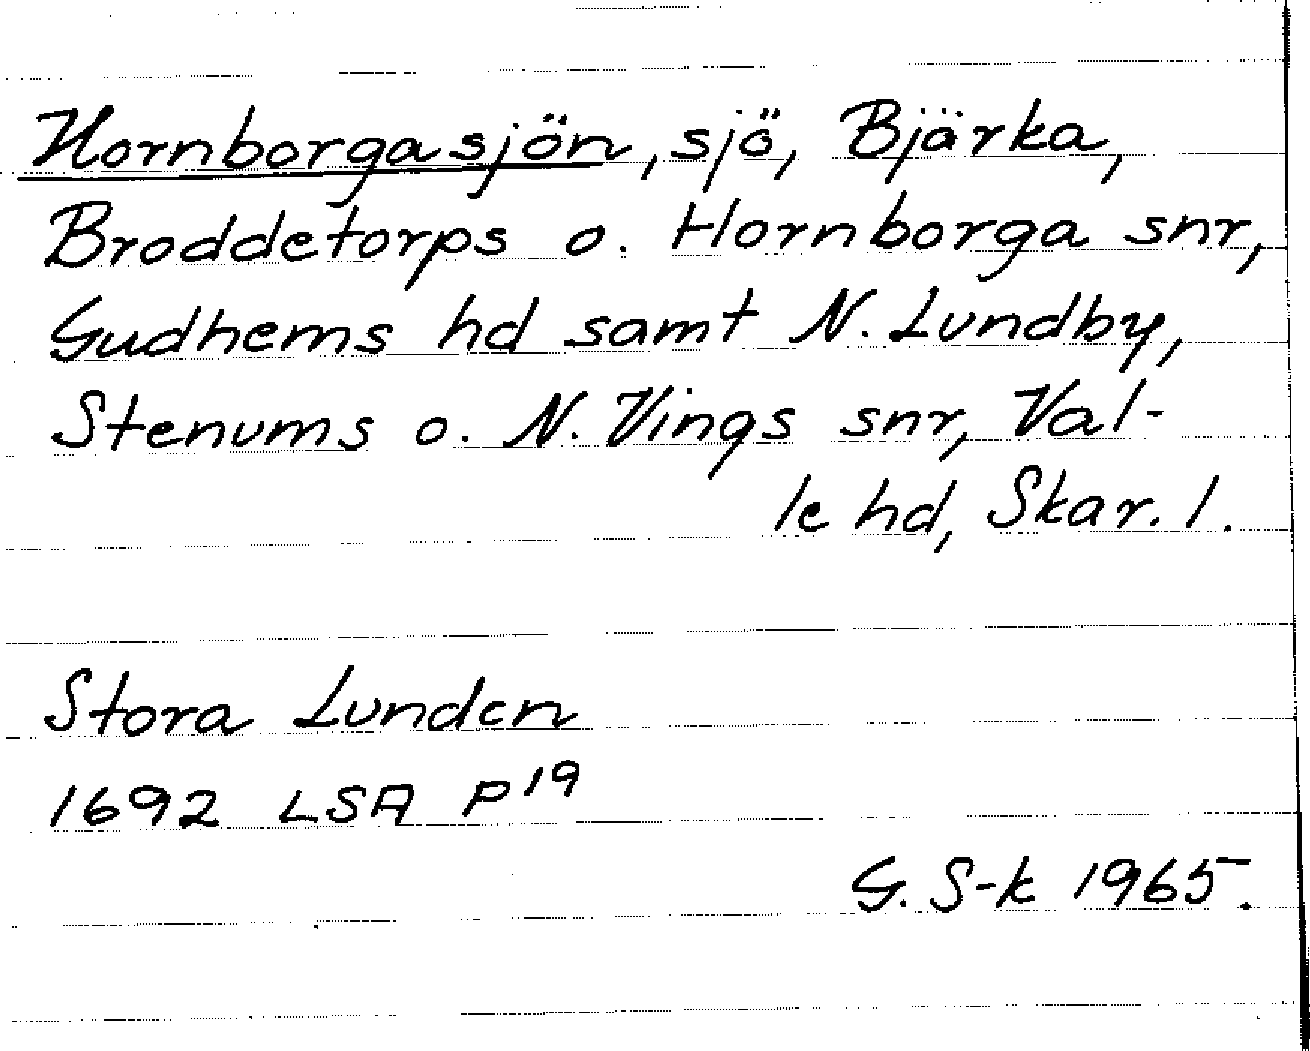 Hornborgasjön, sjö, Bjärka,
Broddetorps o. Hornborga snr,
Gudhems hd samt N. Lundby,
Stenums o. N. Vings snr, Val-
le hd, Skar. l.
Stora Lunden
1692 LSA P19
G. S-k 1965.